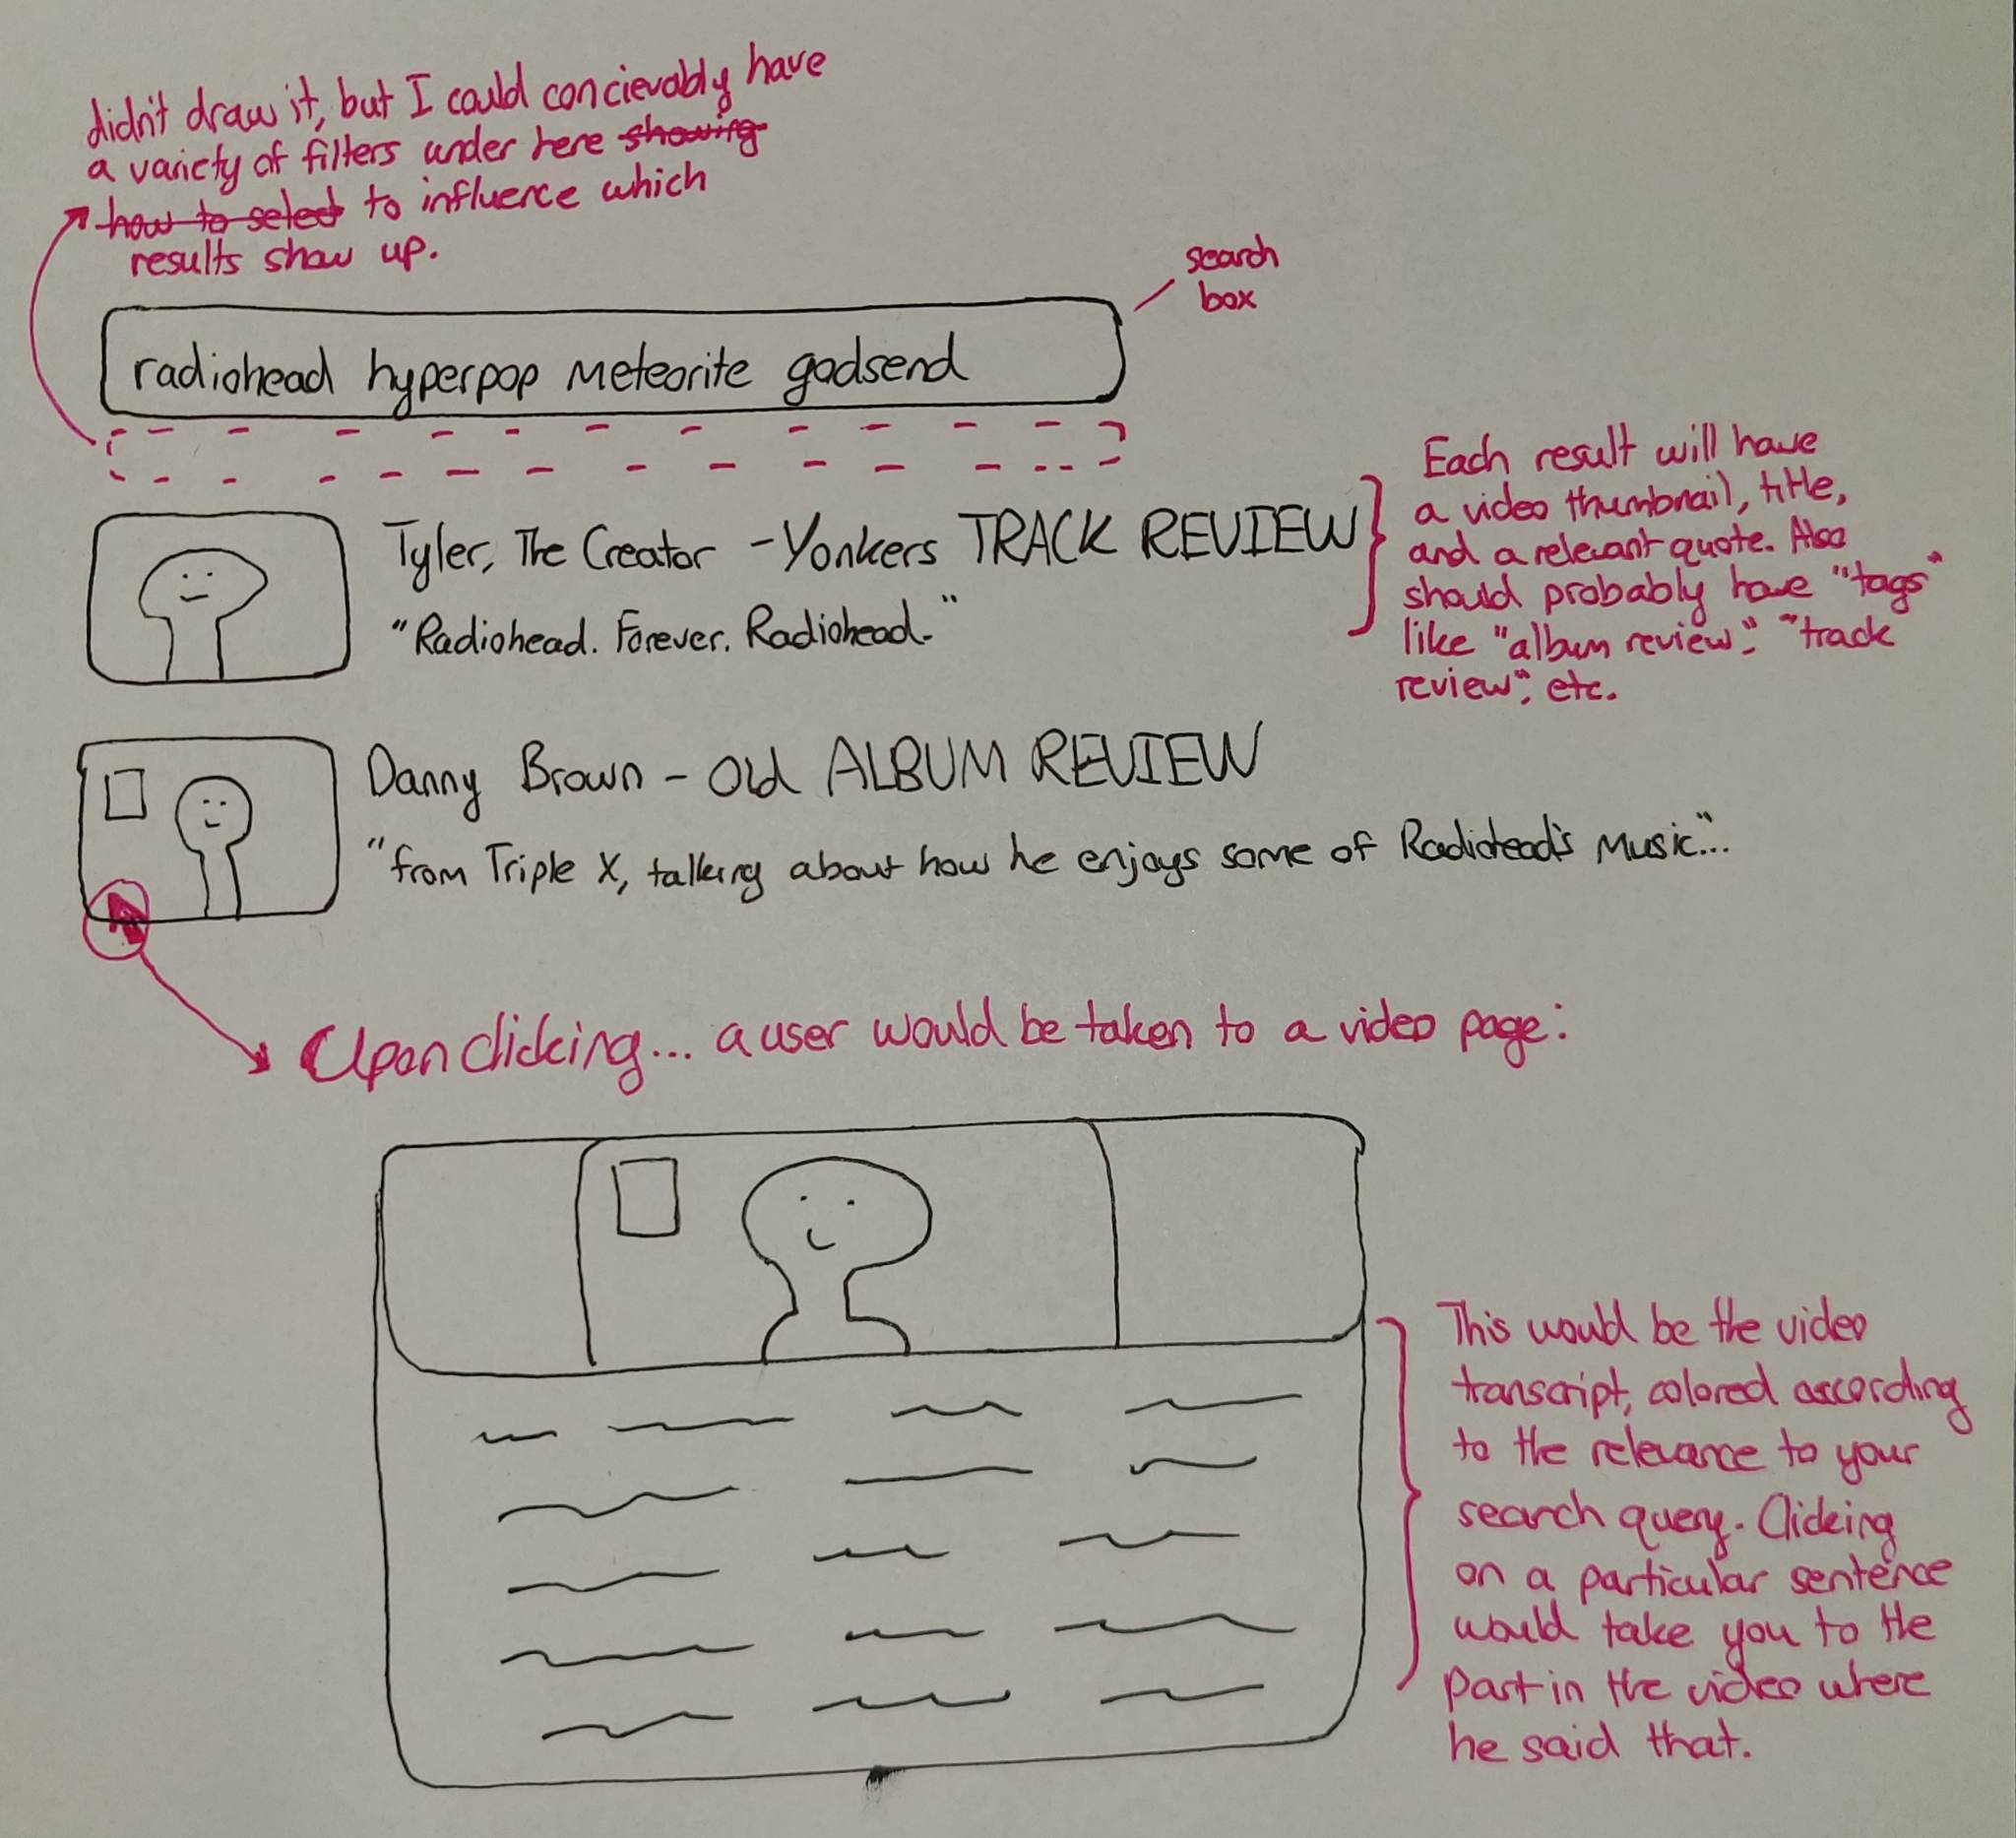 didn't draw it, but I could concievably have
a variety of filters under here showing
how to select to influence which
results show up.
search
box
radiohead hyperpop meteorite godsend
Each result will have
a video thumbnail, title,
and a relevant quote. Also
should probably have "tags"
like "album review", "track
review", etc.
Tyler, The Creator - Yonkers TRACK REVIEW
"Radiohead. Forever. Radiohead."
Danny Brown - Old ALBUM REVIEW
"from Triple X, talking about how he enjoys some of Radiohead's music..."
Upon clicking... a user would be taken to a video page:
This would be the video
transcript, colored according
to the relevance to your
search query. Clicking
on a particular sentence
would take you to the
part in the video where
he said that.